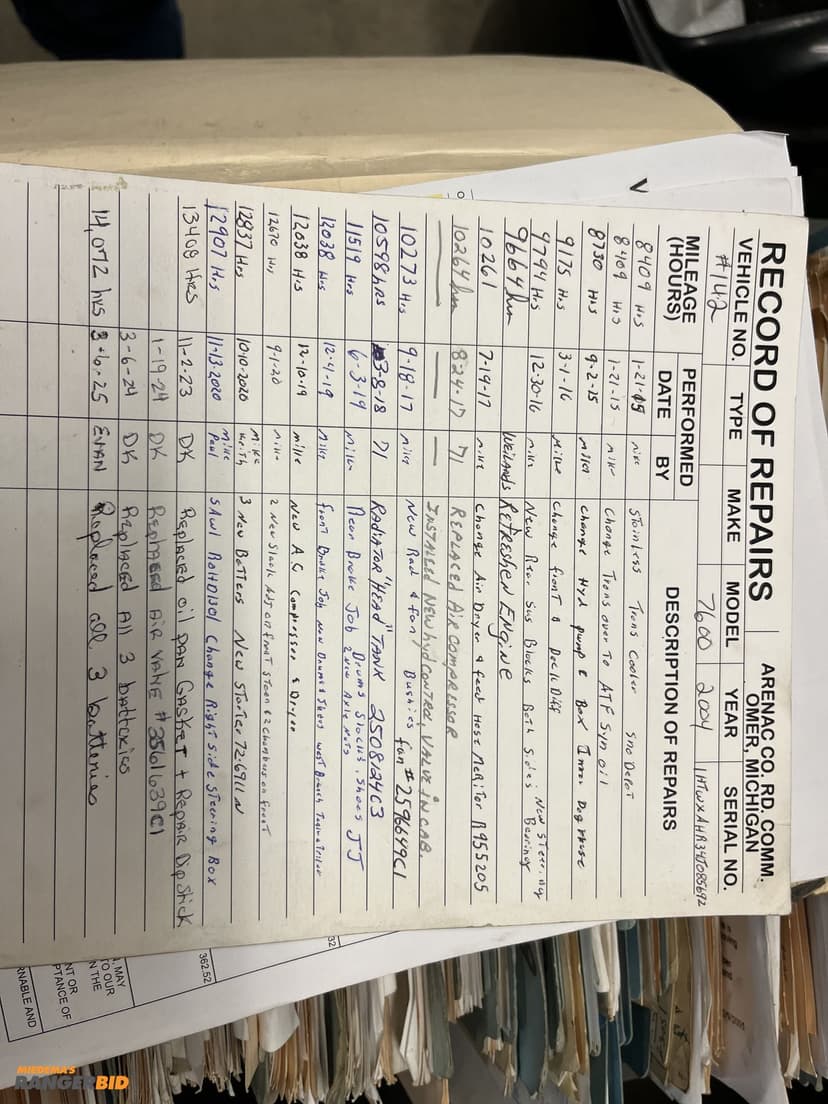 RECORD OF REPAIRS
ARENAC CO. RD. COMM.
OMER, MICHIGAN
VEHICLE NO. TYPE MAKE MODEL YEAR SERIAL NO.
#142 7600 2004 1HTWXAHR34J085692
MILEAGE (HOURS) PERFORMED DATE BY DESCRIPTION OF REPAIRS
8409 Hrs 1-21-15 mike Stainless Trans Cooler Sno Depot
8409 Hrs 1-21-15 mike Change Trans over To ATF Syn oil
8730 Hrs 9-2-15 mike change Hyd pump & Box
9175 Hrs 3-1-16 Mike change front & Diff
9794 Hrs 12-30-16 mike New Rear Sus Blocks Both Sides New Steering Bearing
9664 hrs Weilands Refreshen Engine
10261 7-19-17 mike change Air Dryer & feed Hose Meritor R955205
10264 hrs 8-24-17 71 REPLACED AIR COMPRESSOR
INSTALLED NEW hyd CONTROL VALVE IN CAB.
10273 Hrs 9-18-17 mike New Rad & fan Bushics fan # 2596649C1
10598 hrs 3-8-18 71 RADIATOR "HEAD" TANK 2508124C3
11519 Hrs 6-3-19 Mike Rear Brake Job Drums, Shoes JJ 2 New Axle Nuts
12038 Hrs 12-4-19 Mike front Brake Job New Drums & Shoes West Branch
12038 Hrs 12-10-19 mike New A.C Compressor & Drier
12670 Hrs 9-1-20 mike 2 New Slack Adj on front & 2 chambers on front
12837 Hrs 10-10-2020 Mike Keith 3 New Batterys New Starter
12907 Hrs 11-13-2020 Mike Paul Change Right Side Steering Box
13408 Hrs 11-2-23 DK Replaced oil pan Gasket + Repair Dipstick
1-19-24 DK Replaced Air Vane # 3561639C1
3-6-24 DK Replaced All 3 batteries
14,072 hrs 3-6-25 EVAN Replaced all 3 batteries
32
362.52
, MAY
TO OUR
N THE
NT OR
PTANCE OF
RNABLE AND
V
MIEDEMA'S
RANGERBID